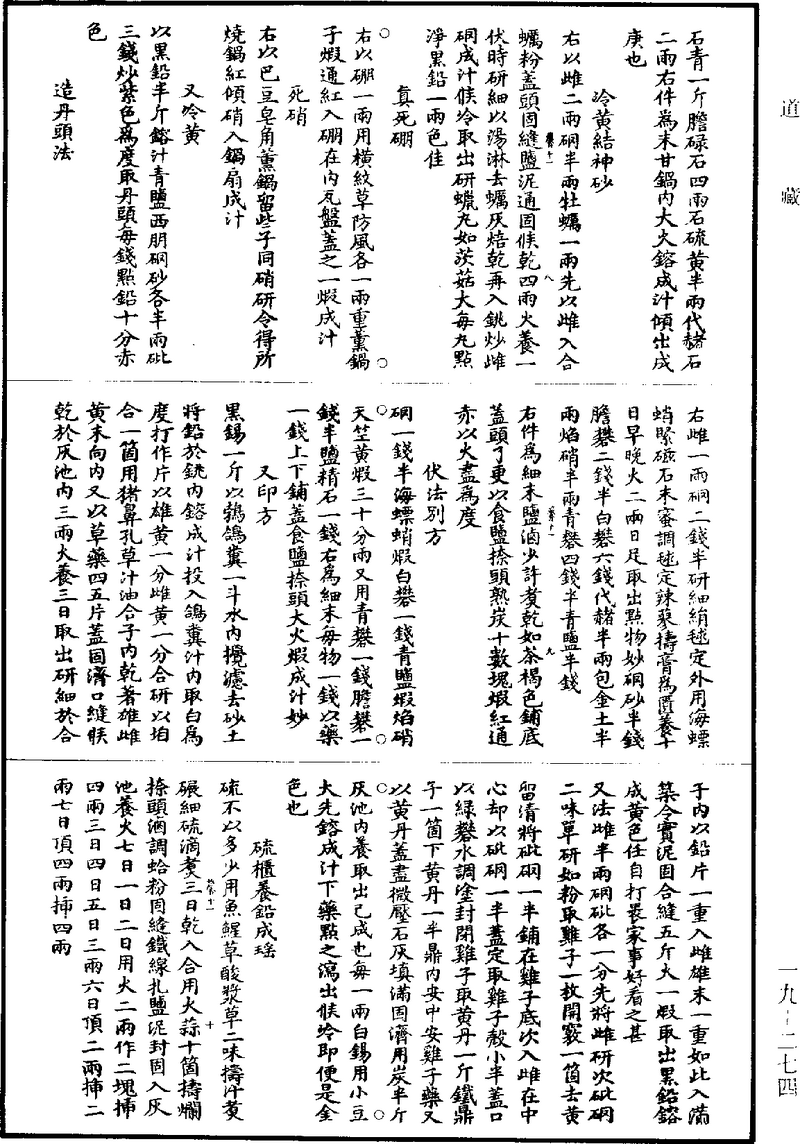 道藏
石青一斤膽碌石四兩石硫黃半兩代赭石
二兩右件為末甘鍋內大火鎔成汁傾出成
庚也
冷黃結神砂
右以雌二兩硇半兩牡蠣一兩先以雌入合
蠣粉蓋頭固縫鹽泥通固候乾四兩火養一
伏時研細以湯淋去蠣灰焙乾再入銚炒雌
硇成汁候冷取出研蠟丸如茨菇大每丸點
淨黑鉛一兩色佳
真死硼
右以硼一兩用橫紋草防風各一兩重薰鍋
子煆通紅入硼在內瓦盤蓋之一煆成汁
死硝
右以巴豆皂角薰鍋留些子同硝研令得所
燒鍋紅傾硝入鍋扇成汁
又冷黃
以黑鉛半斤鎔汁青鹽西朋硇砂各半兩砒
三錢炒紫色為度取丹頭每錢點鉛十分赤
色
造丹頭法
右雌一兩硇二錢半研細絹毬定外用海螵
蛸緊磁石末蜜調毬定辣蓼擣膏為匱養十
日早晚火二兩日足取出點物妙硇砂半錢
膽礬二錢半白礬六錢代赭半兩包金土半
兩焰硝半兩青礬四錢半青鹽半錢
右件為細末鹽滷少許煑乾如茶褐色鋪底
蓋頭了更以食鹽捺頭熟炭十數塊煆紅通
赤以火盡為度
伏法別方
硇一錢半海螵蛸煆白礬一錢青鹽煆焰硝
天竺黃煆三十分兩又用青礬一錢膽礬一
錢半鹽精石一錢右為細末每物一錢以藥
一錢上下鋪蓋食鹽捺頭大火煆成汁妙
又印方
黑錫一斤以鵓鴿糞一斗水內攪濾去砂土
將鉛於銚內鎔成汁投入鴿糞汁內取白為
度打作片以雄黃一分雌黃一分合研以坩
合一箇用猪鼻孔草汁油合子內乾著雄雌
黃末向內又以草藥四五片蓋固濟口縫眹
乾於灰池內三兩火養三日取出研細於合
子內以鉛片一重入雌雄末一重如此入滿
築令實泥固合縫五斤火一煆取出黑鉛鎔
成黃色任自打最家事好看之甚
又法雌半兩硇砒各一分先將雌研次砒硇
二味草研如粉取雞子一枚開竅一箇去黃
留清將砒硇一半鋪在雞子底次入雌在中
心却以砒硇一半蓋定取雞子殼小半蓋口
以綠礬水調塗封閉雞子取黃丹一斤鐵鼎
子一箇下黃丹一半鼎內安中安雞子藥又
以黃丹蓋盡微壓石灰填滿固濟用炭半斤
灰池內養取出已成也每一兩白錫用小豆
大先鎔成汁下藥點之瀉出候冷即便是金
色也
硫櫃養鉛成瑤
硫不以多少用魚鯹草酸漿草二味擣汁黃
碾細硫滴煑三日乾入合用大蒜十箇擣爛
捺頭酒調蛤粉固縫鐵線扎鹽泥封固入灰
池養火七日一日二日用火二兩作二塊挿
四兩三日四日五日三兩六日頂二兩挿二
兩七日頂四兩挿四兩
一九-二七四